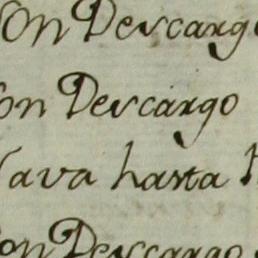 Con Descargo
Con Descargo
Nava hasta
Con Descargo